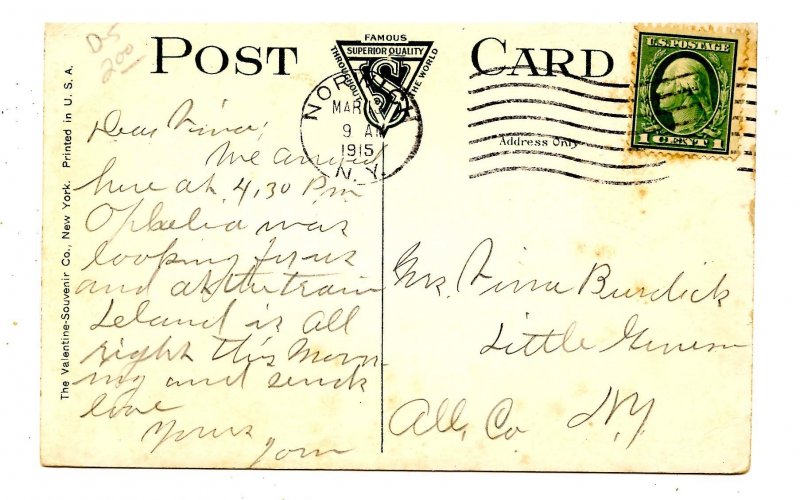 DS
200
POST CARD
FAMOUS
SUPERIOR QUALITY
THROUGHOUT THE WORLD
U.S. POSTAGE
1 CENT 1
NOR
MAR
9 A
1915
N.Y.
Address Only
The Valentine-Souvenir Co., New York. Printed in U. S. A.
Dear Vina,
We arrived
here at 4,30 Pm
Ophelia was
looking for us
and at the train
Leland is all
right this Morn-
ing and sends
love
Yours
Mrs. Vina Burdick
Little Genesee
All, Co N.Y.